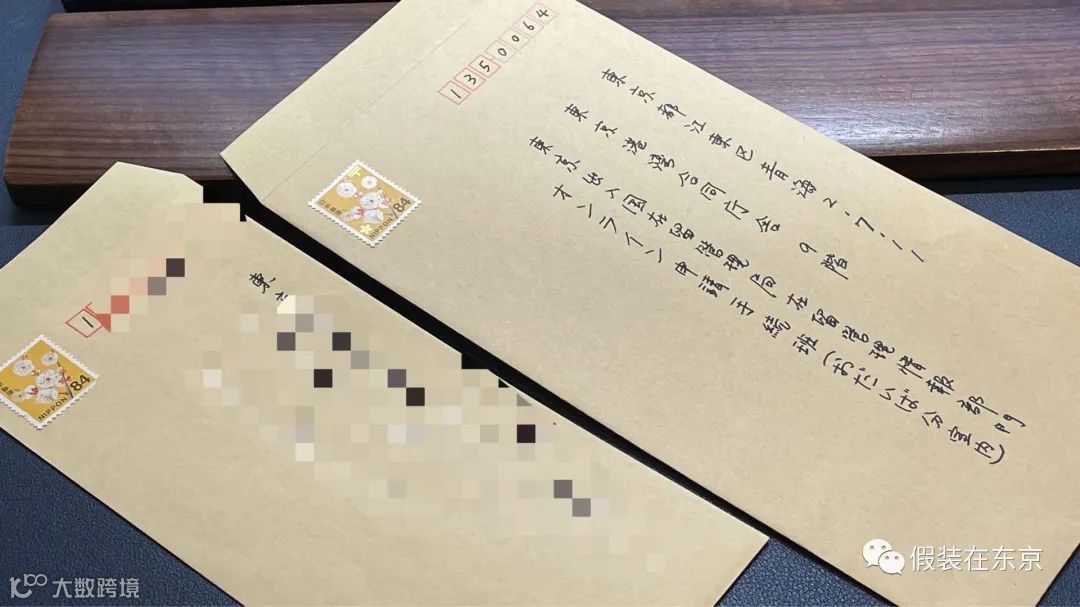 1350064
東京都江東区青海2.7.1
東京港湾合同庁舎 9階
東京出入国在留管理局在留管理情報部門
オンライン申請手続班(おだいば分室内)
NIPPON 84
1
東
NIPPON 84
大数跨境
假装在东京